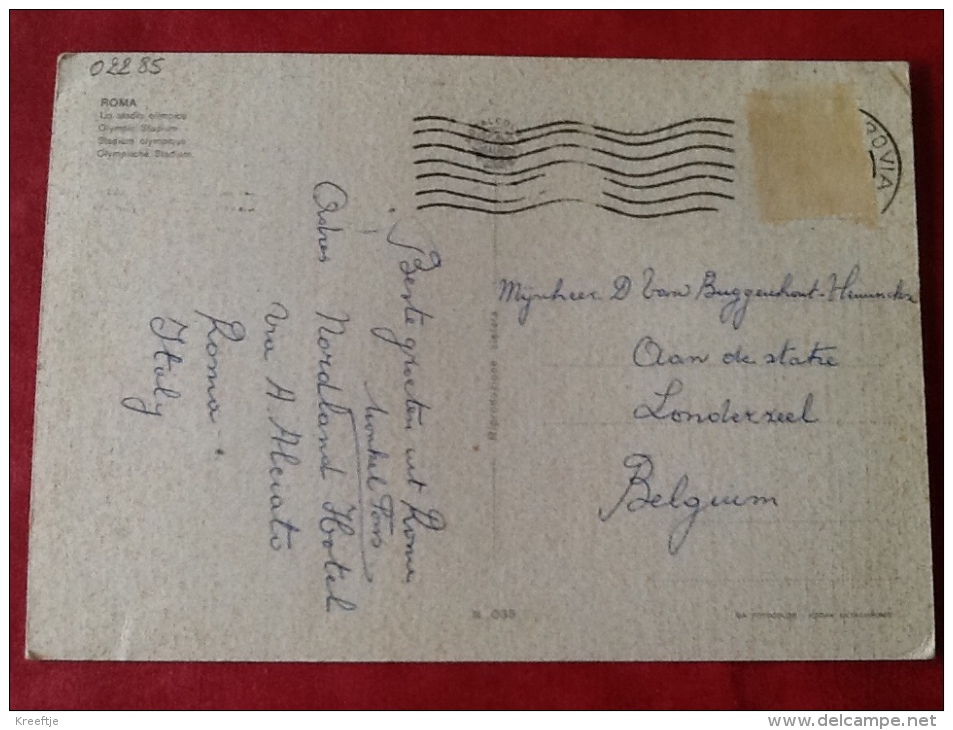 02285
ROMA
Lo stadio olimpico
Olympic Stadium
Stadium olympique
Olympische Stadium
ROVIA
Beste groeten uit Rome
Nonkel Fons
Adres Nordland Hotel
Via A. Alciato
Roma
Italy
Mijnheer D Van Buggenhout-
Aan de statie
Londerzeel
Belgium
N. 035
Kreeftje
www.delcampe.net